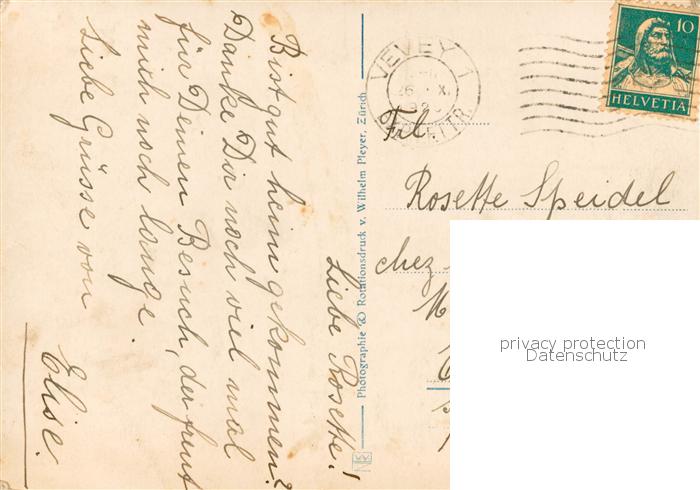 Liebe Rosette!
Bist gut heimgekommen?
Danke Dir noch viel mal
für Deinen Besuch, der freut
mich noch lange.
Liebe Grüsse von
Elise.
Photographie & Rotationsdruck v. Wilhelm Pleyer, Zürich
VEVEY 1
10
HELVETIA
Frl.
Rosette Speidel
chez
privacy protection
Datenschutz